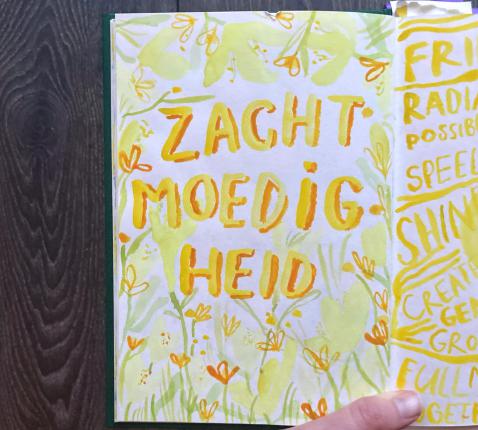 ZACHT
MOEDIG
HEID
FRI
RADIA
POSSIB
SPEE
SHIN
CREATE
GEN
GRO
FULLN
OGE